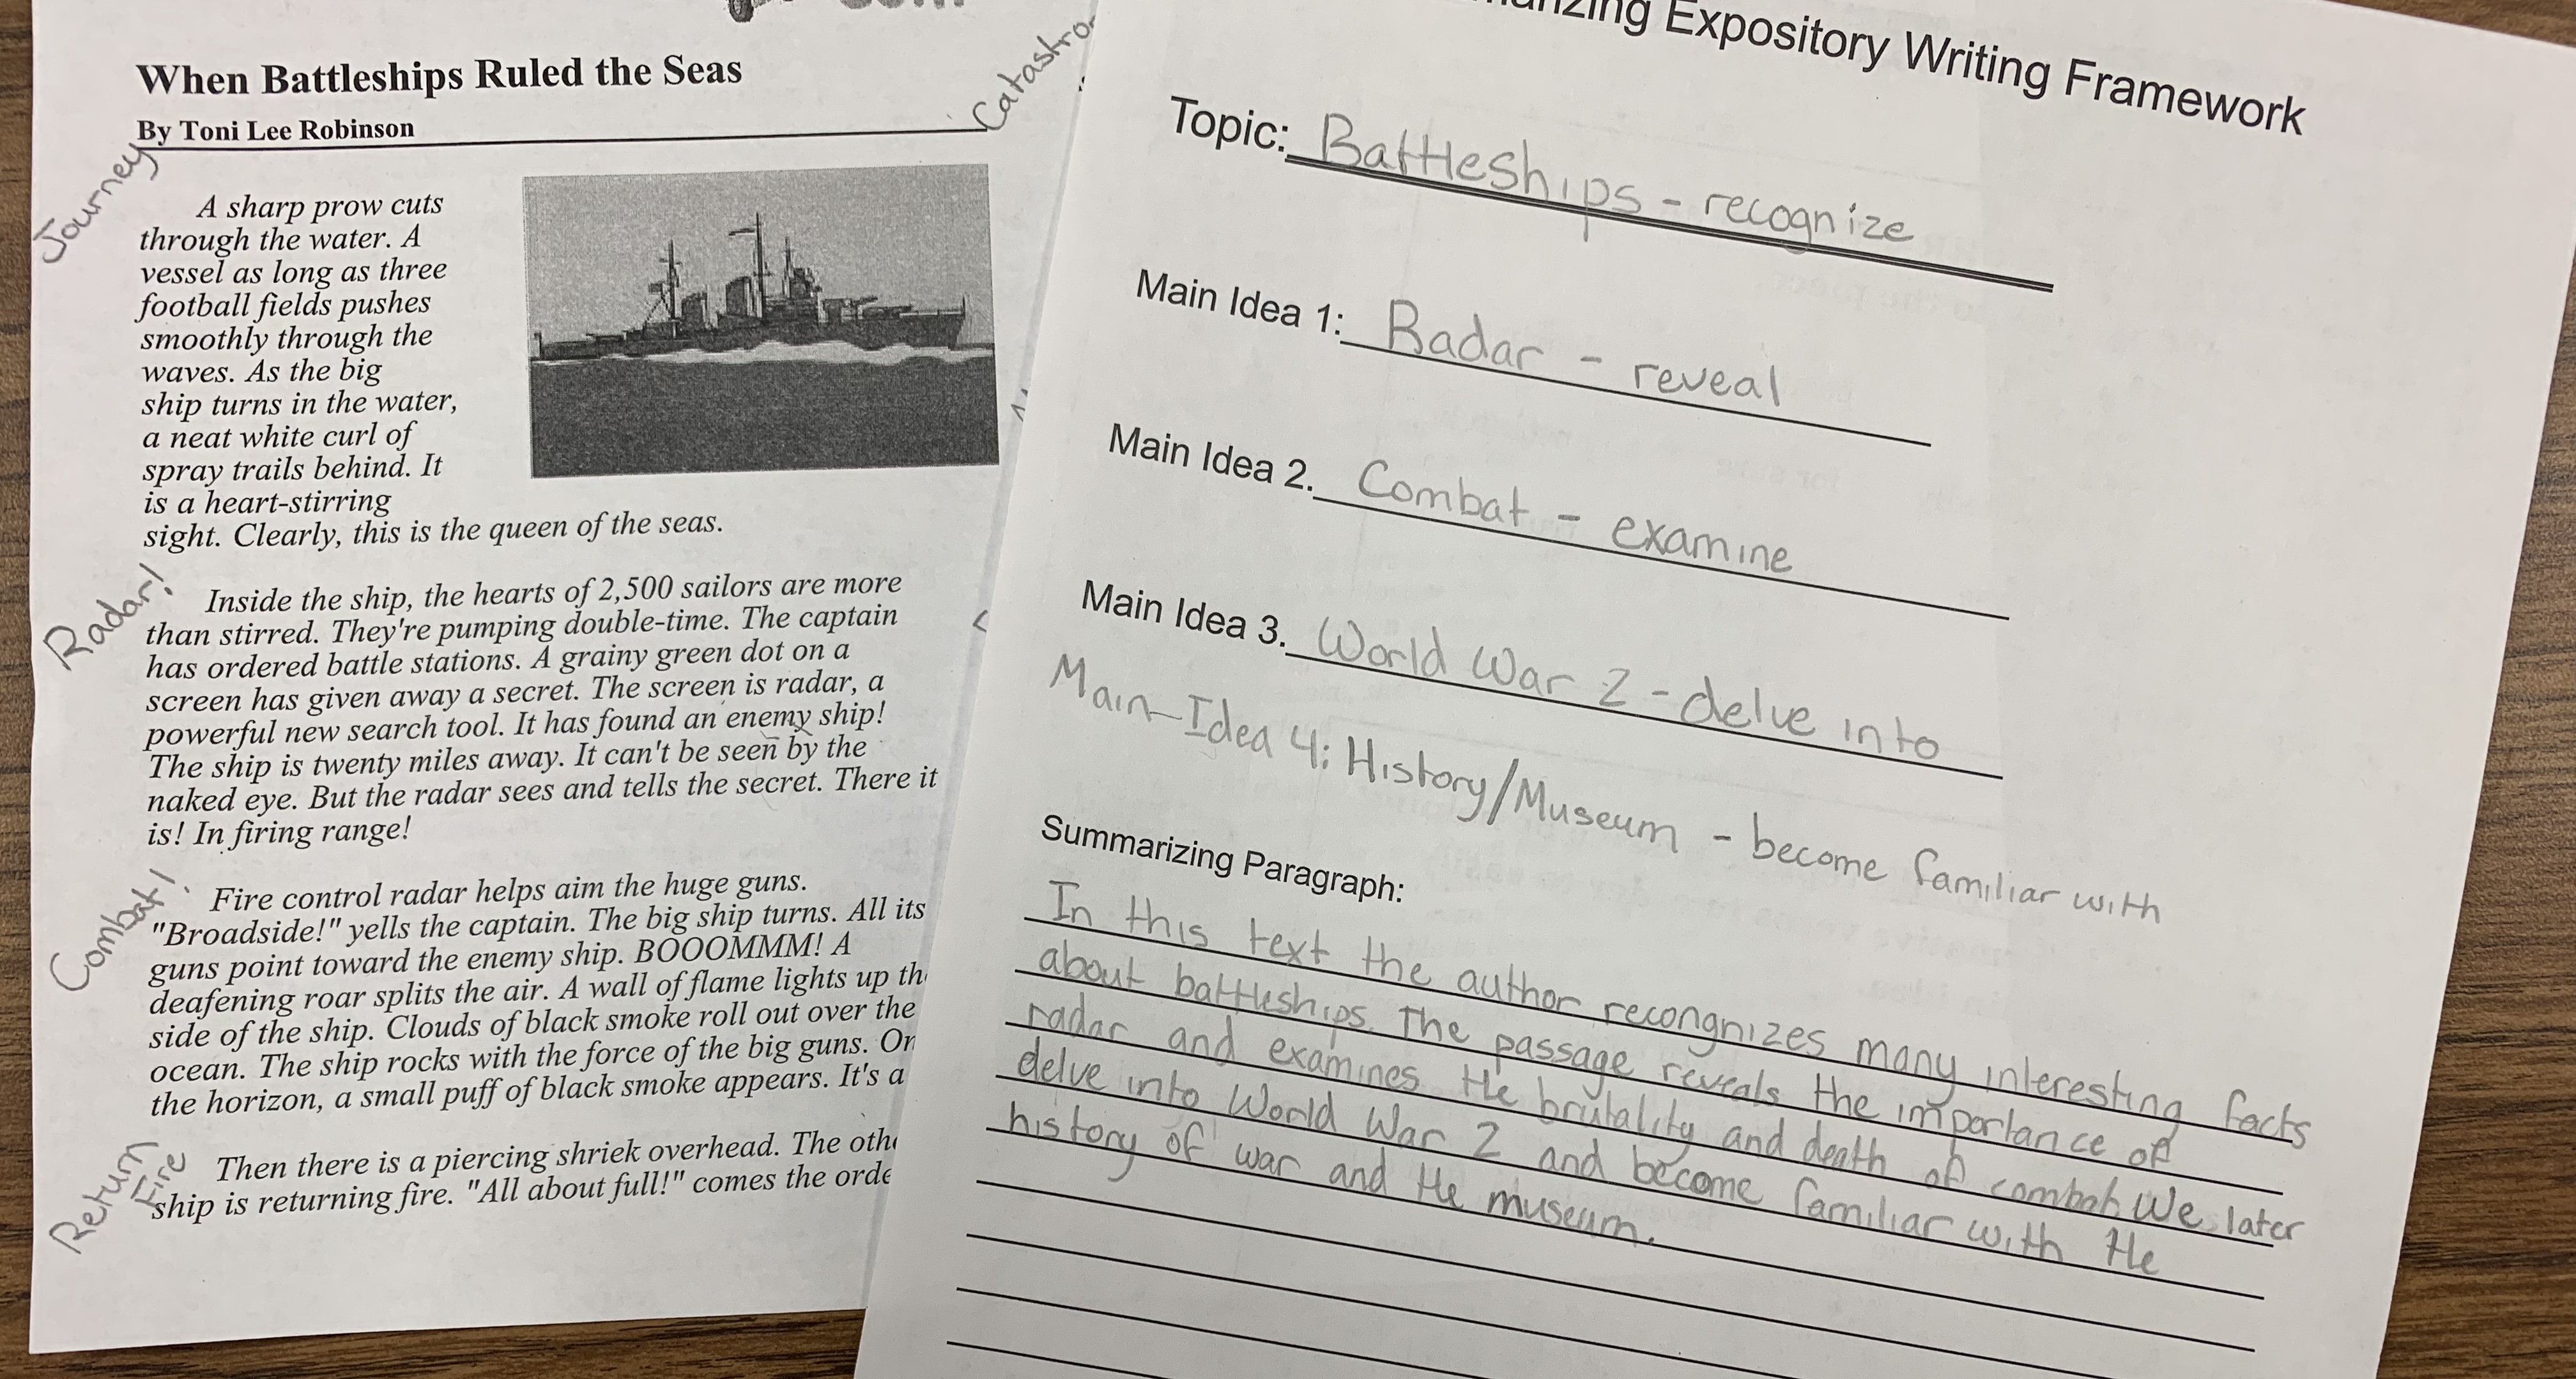 When Battleships Ruled the Seas
By Toni Lee Robinson
Journey
A sharp prow cuts
through the water. A
vessel as long as three
football fields pushes
smoothly through the
waves. As the big
ship turns in the water,
a neat white curl of
spray trails behind. It
is a heart-stirring
sight. Clearly, this is the queen of the seas.
Radar!
Inside the ship, the hearts of 2,500 sailors are more
than stirred. They're pumping double-time. The captain
has ordered battle stations. A grainy green dot on a
screen has given away a secret. The screen is radar, a
powerful new search tool. It has found an enemy ship!
The ship is twenty miles away. It can't be seen by the
naked eye. But the radar sees and tells the secret. There it
is! In firing range!
Combat!
Fire control radar helps aim the huge guns.
"Broadside!" yells the captain. The big ship turns. All its
guns point toward the enemy ship. BOOOMMM! A
deafening roar splits the air. A wall of flame lights up
side of the ship. Clouds of black smoke roll out over the
ocean. The ship rocks with the force of the big guns.
the horizon, a small puff of black smoke appears. It's a
Return
Fire
Then there is a piercing shriek overhead. The
ship is returning fire. "All about full!" comes the
Catastro
Expository Writing Framework
Topic: Battleships - recognize
Main Idea 1: Radar - reveal
Main Idea 2. Combat - examine
Main Idea 3. World War 2 - delve into
Main Idea 4: History/Museum - become familiar with
Summarizing Paragraph:
In this text the author recongnizes many interesting facts
about battleships. The passage reveals the importance of
radar and examines the brutality and death of combat. We later
delve into World War 2 and become familiar with the
history of war and the museum.